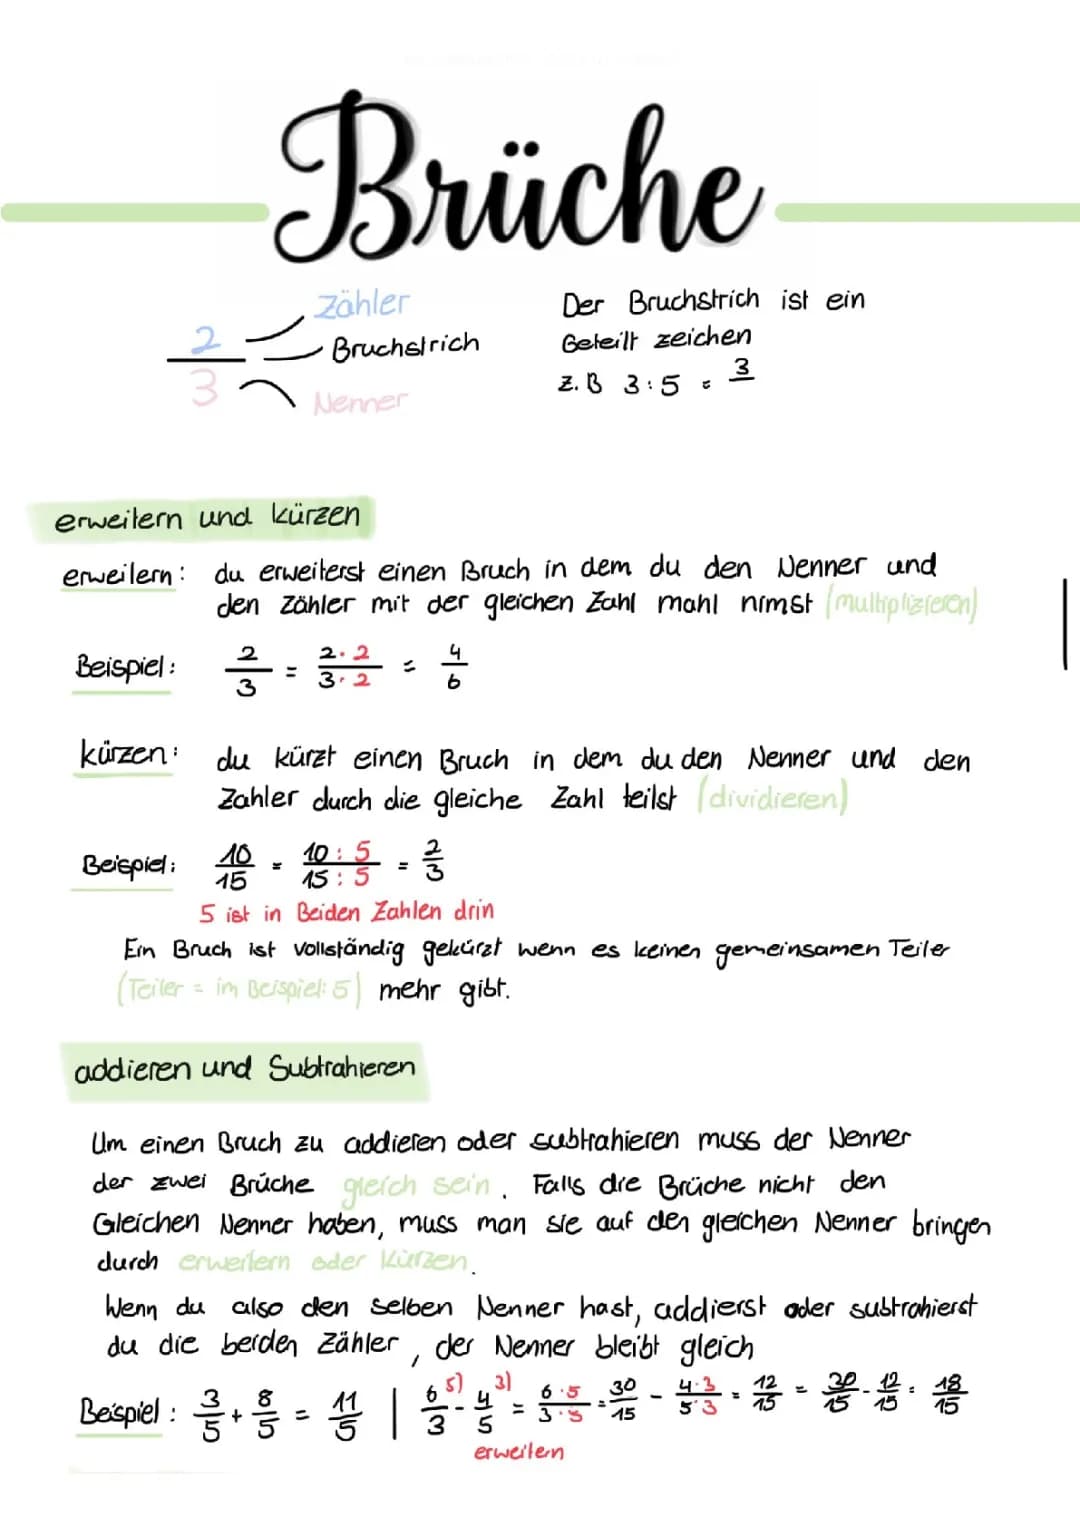 Brüche
Zähler
2
Bruchstrich
3
Nenner
Der Bruchstrich ist ein
Geteilt zeichen
z.B 3:5 = 3
erweitern und kürzen
erweitern: du erweiterst einen Bruch in dem du den Nenner und
den Zähler mit der gleichen Zahl mahl nimst (multiplizieren)
Beispiel: 2/3 = 2·2/3·2 = 4/6
kürzen: du kürzt einen Bruch in dem du den Nenner und den
Zahler durch die gleiche Zahl teilst (dividieren)
Beispiel: 10/15 = 10:5/15:5 = 2/3
5 ist in Beiden Zahlen drin
Ein Bruch ist vollständig gekürzt wenn es keinen gemeinsamen Teiler
(Teiler = im Beispiel: 5) mehr gibt.
addieren und Subtrahieren
Um einen Bruch zu addieren oder subtrahieren muss der Nenner
der zwei Brüche gleich sein. Falls die Brüche nicht den
Gleichen Nenner haben, muss man sie auf den gleichen Nenner bringen
durch erweitern oder Kürzen.
Wenn du also den selben Nenner hast, addierst oder subtrahierst
du die beiden Zähler, der Nenner bleibt gleich
Beispiel: 3/5 + 8/5 = 11/5 | 6/3 5) - 4/5 3) = 6·5/3·5 = 30/15 - 4·3/5·3 = 12/15 = 30/15 - 12/15 = 18/15
erweitern